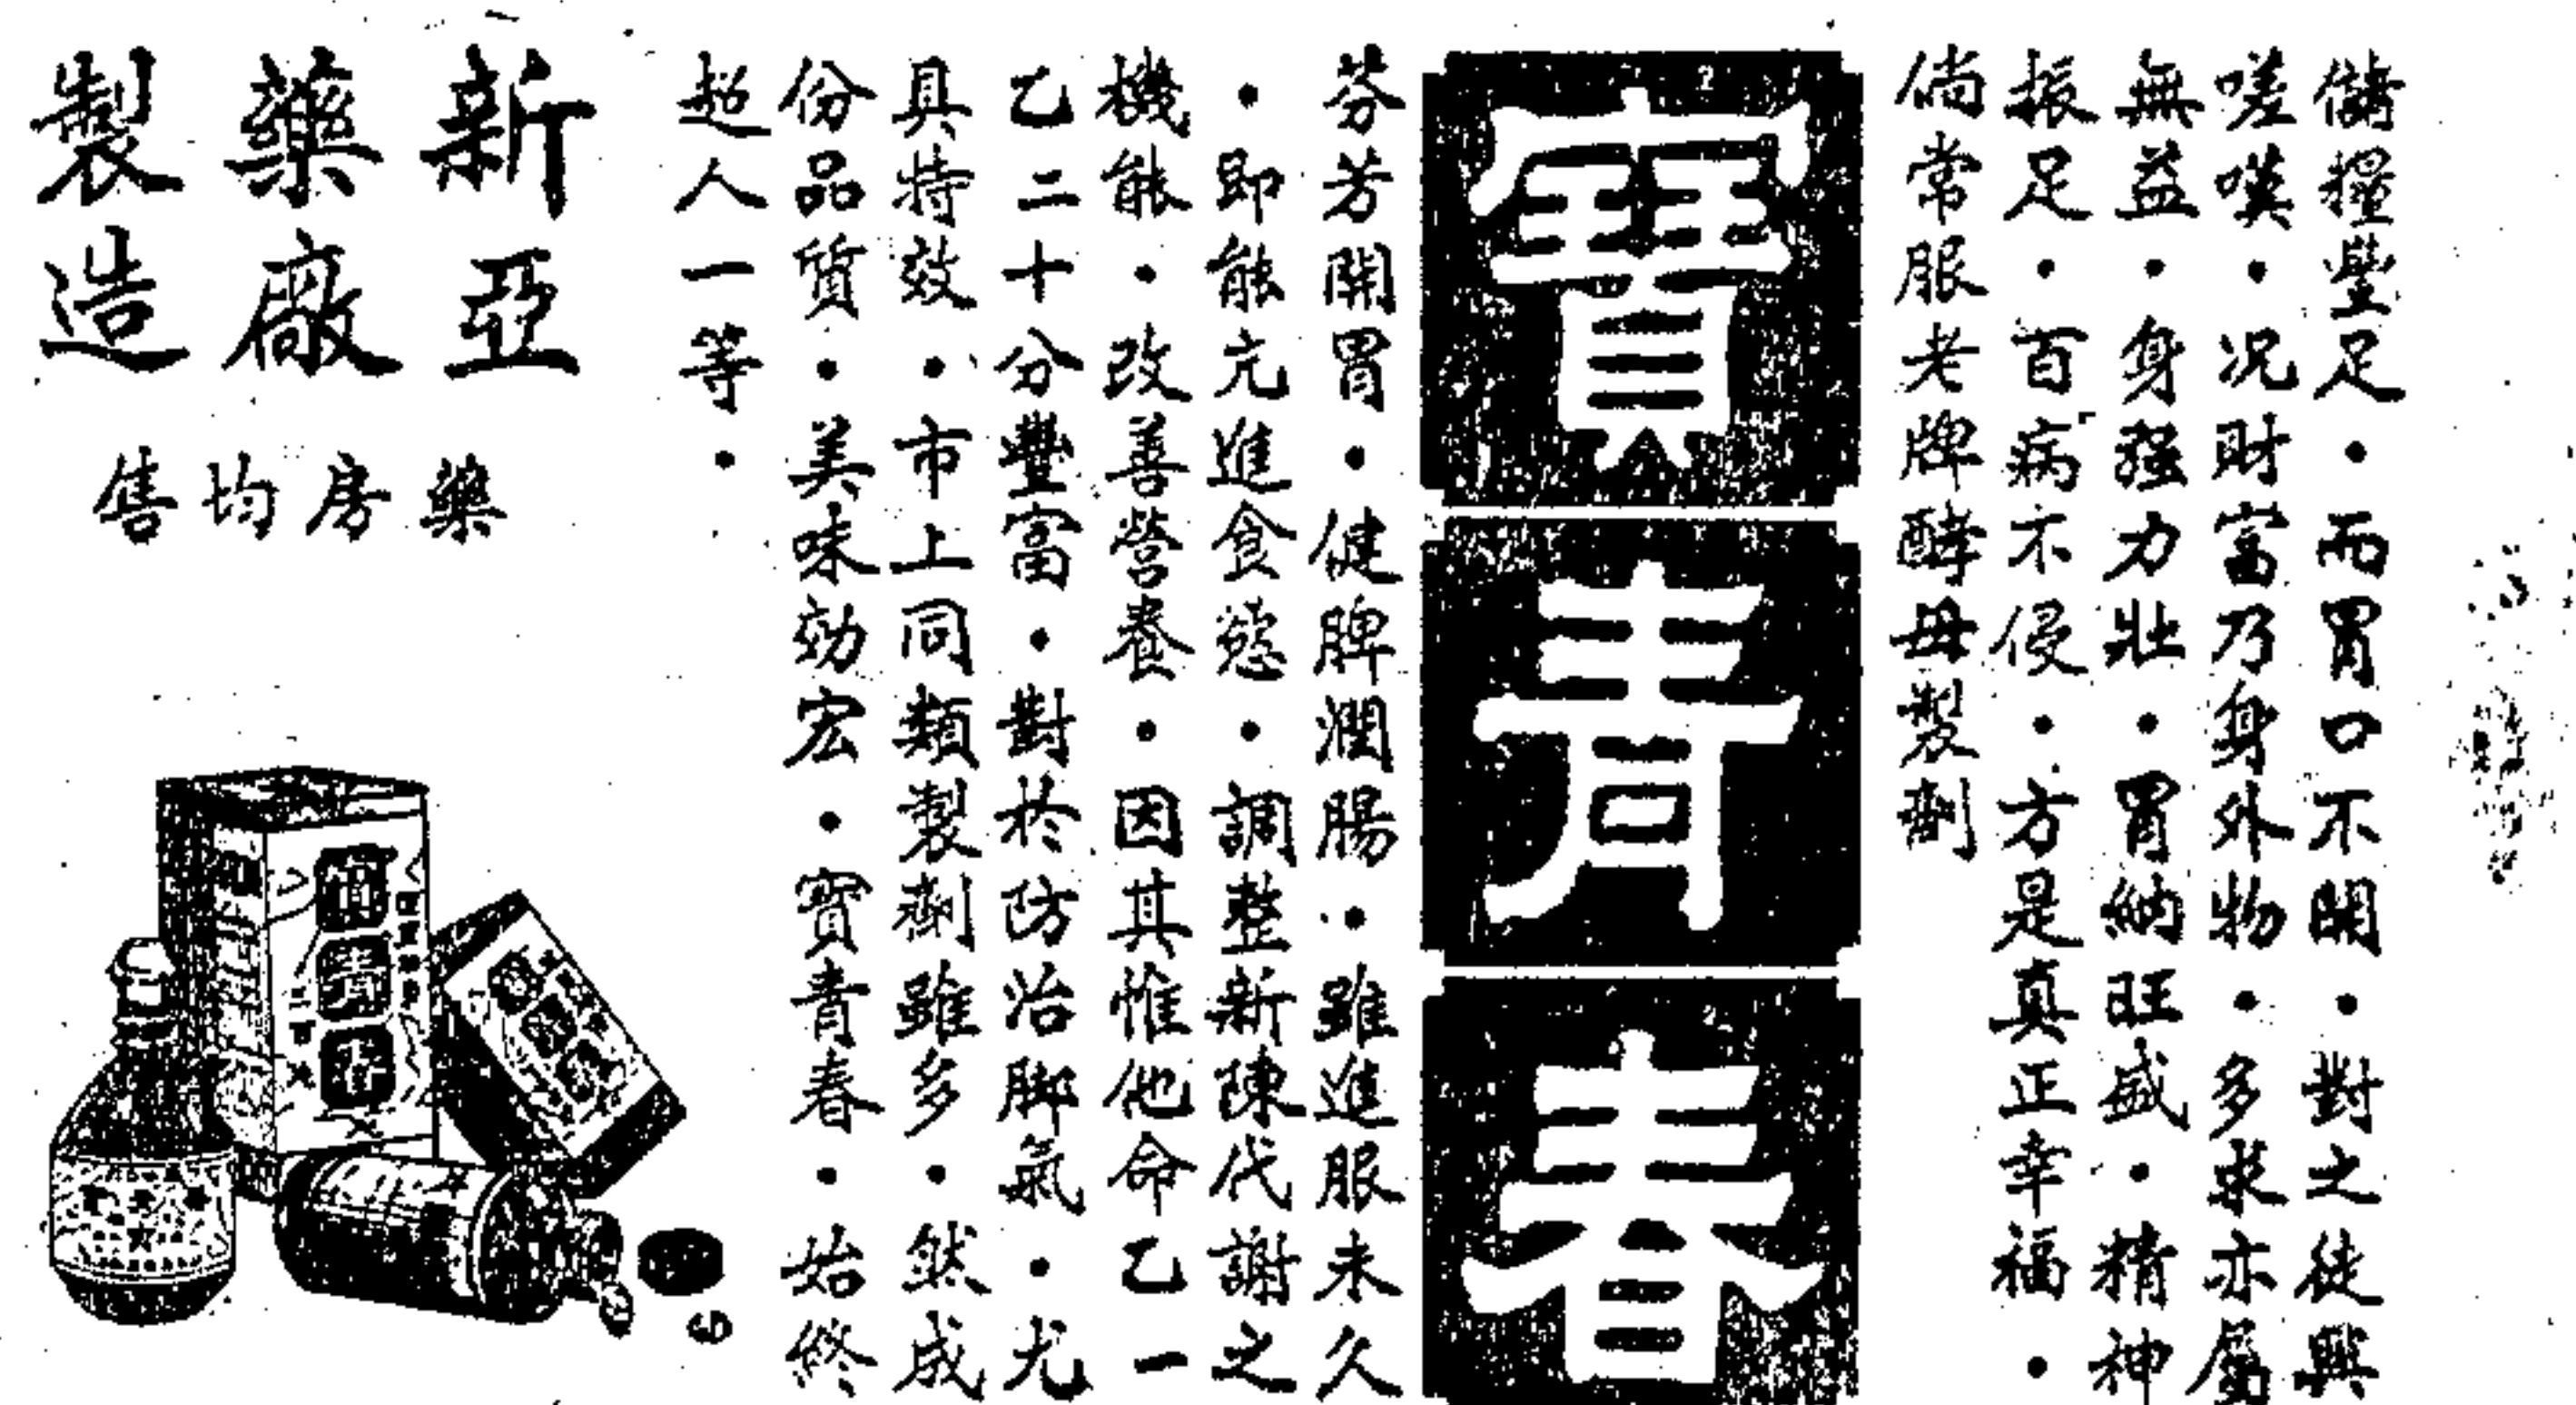 儲糧豐足・而胃口不開・對之徒興
嗟嘆・况財富乃身外物・多求亦屬
無益・身强力壯・胃納旺盛・精神
振足・百病不侵・方是真正幸福・
倘常服老牌酵母製劑
寶青春
芬芳開胃・健脾潤腸・雖進服未久
・即能亢進食慾・調整新陳代謝之
機能・改善營養・因其惟他命乙一
乙二十分豐富・對於防治脚氣・尤
具特效・市上同類製劑雖多・然成
份品質・美味効宏・寶青春・始終
超人一等・
新亞
藥廠
製造
藥房均售
寶青春